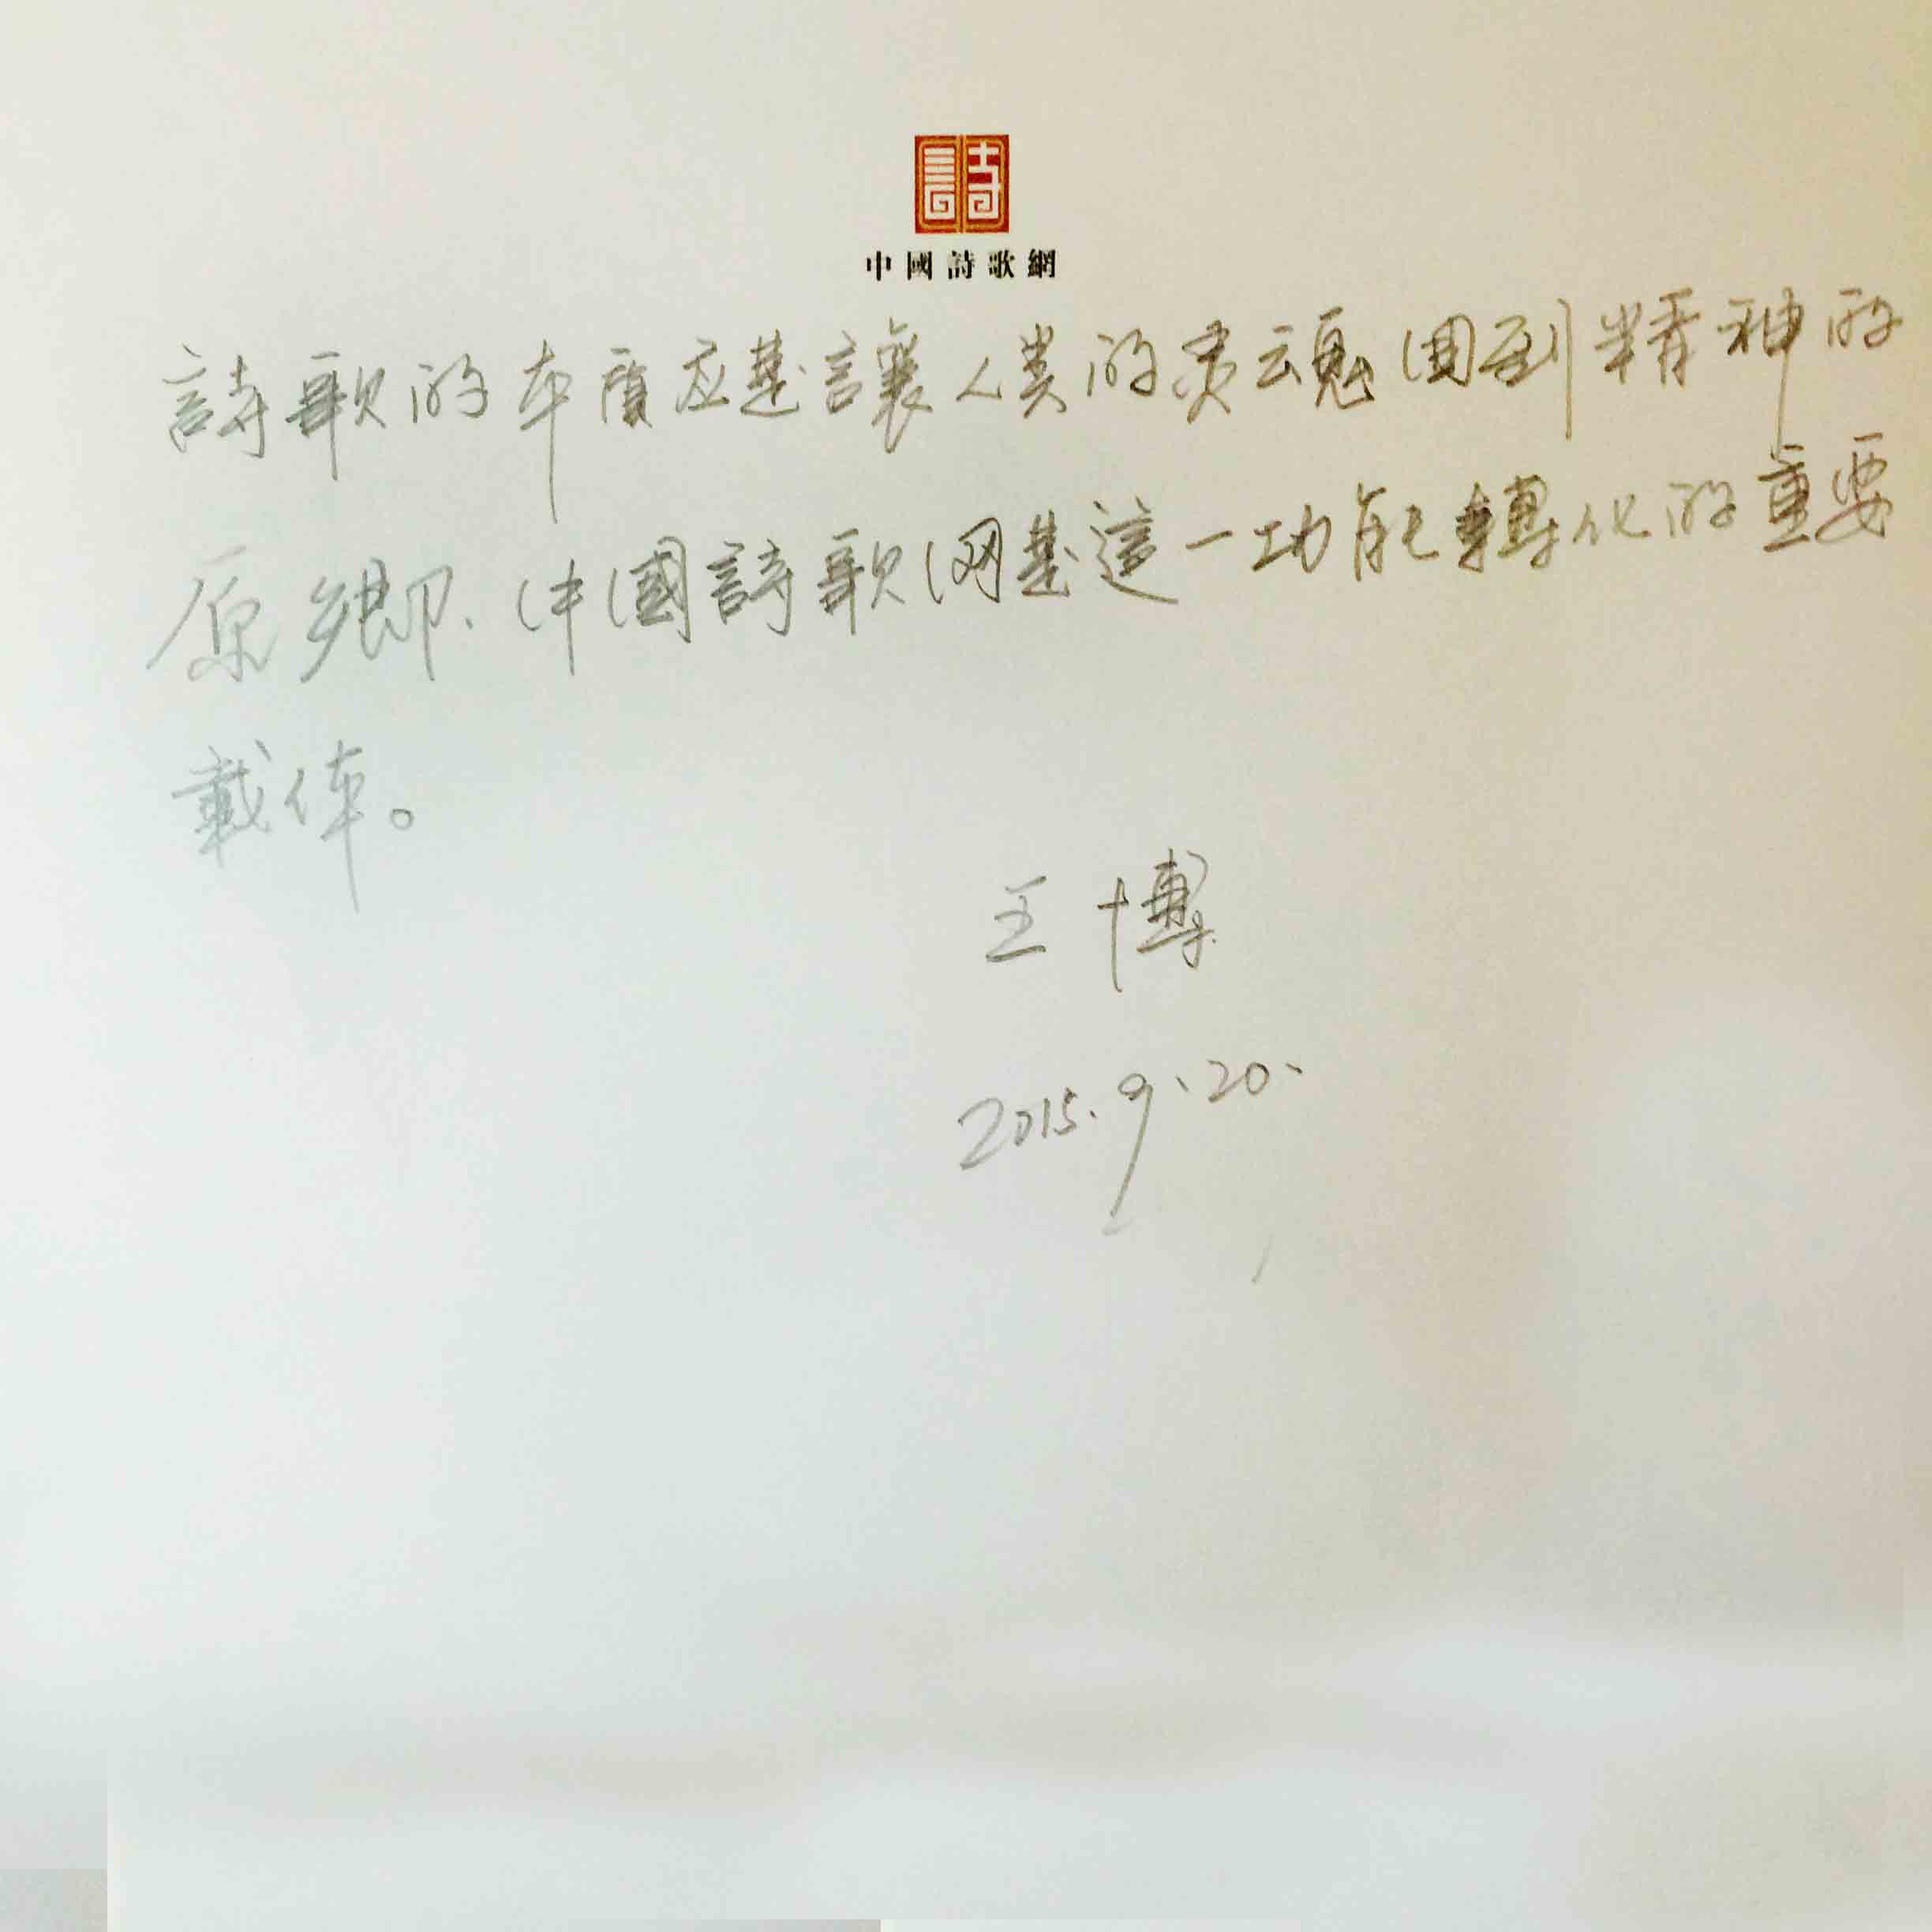 詩
中國詩歌網
詩歌的本質应是讓人类的灵魂回到精神的
原鄉.中國詩歌网是這一功能轉化的重要
載体。
王博
2015.9.20.